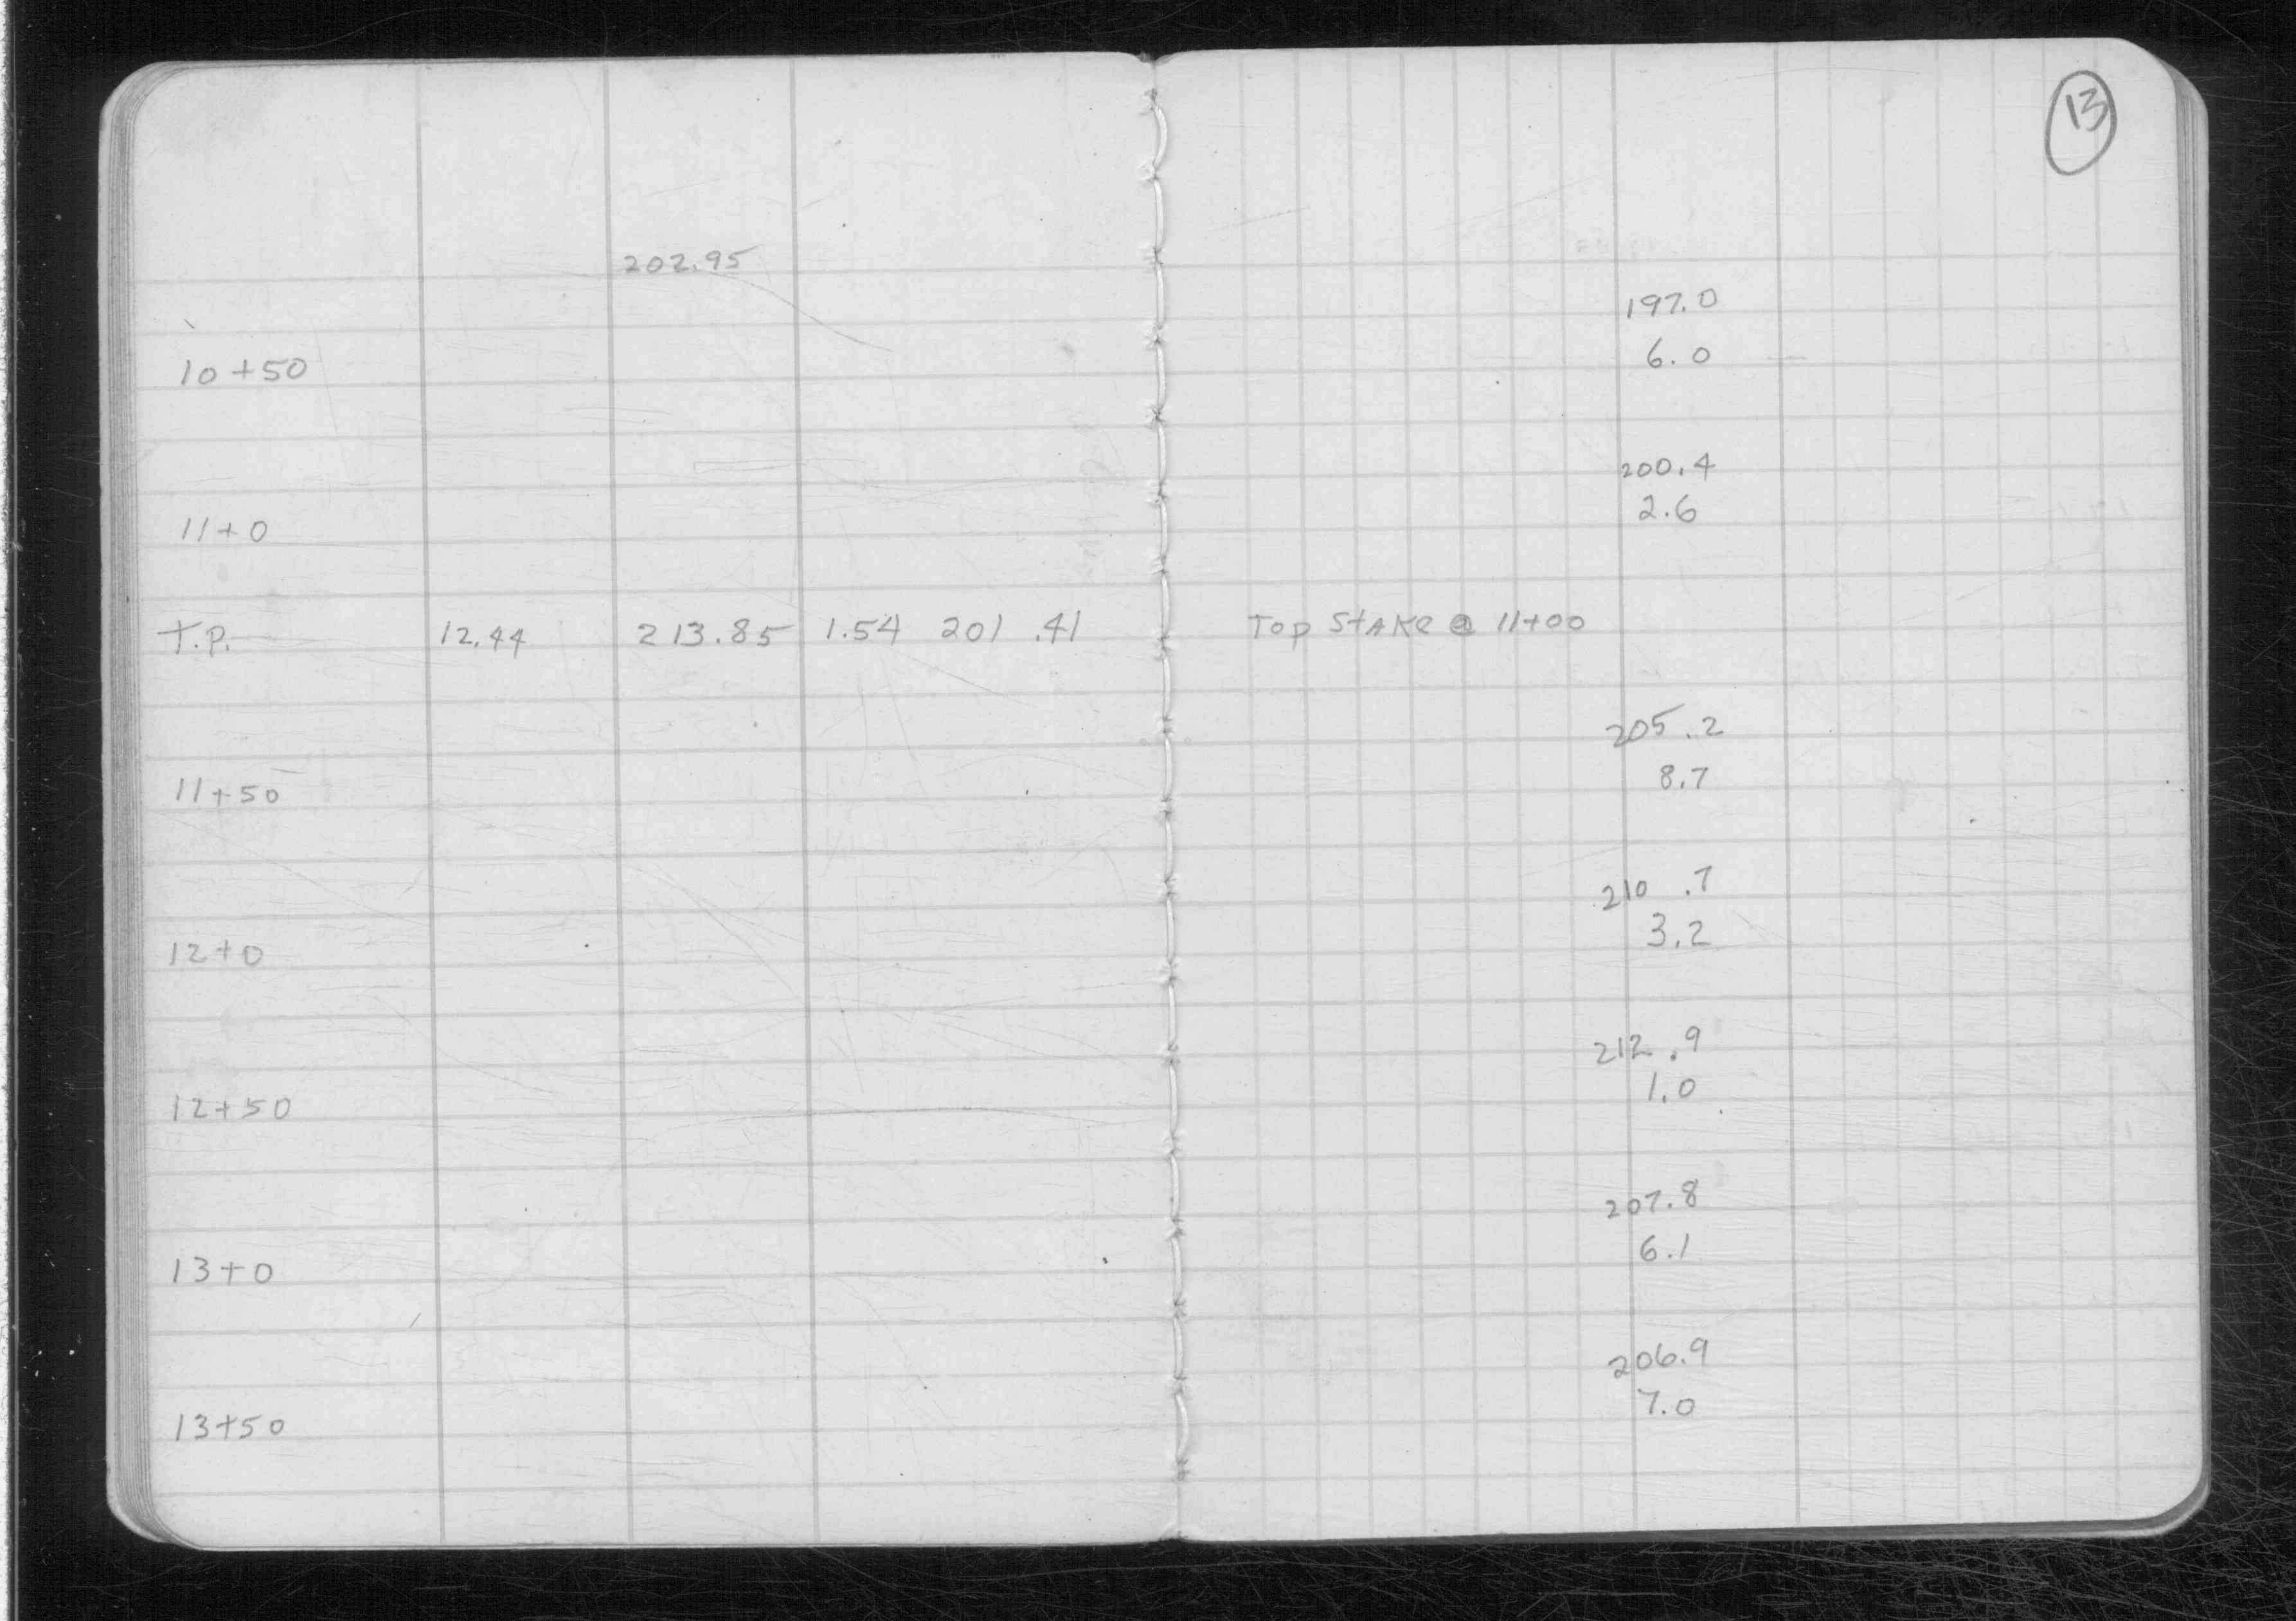 13
202.95
197.0
10+50 6.0
200.4
11+0 2.6
T.P. 12.44 213.85 1.54 201.41 Top Stake @ 11+00
205.2
11+50 8.7
210.7
12+0 3.2
212.9
12+50 1.0
207.8
13+0 6.1
206.9
13+50 7.0